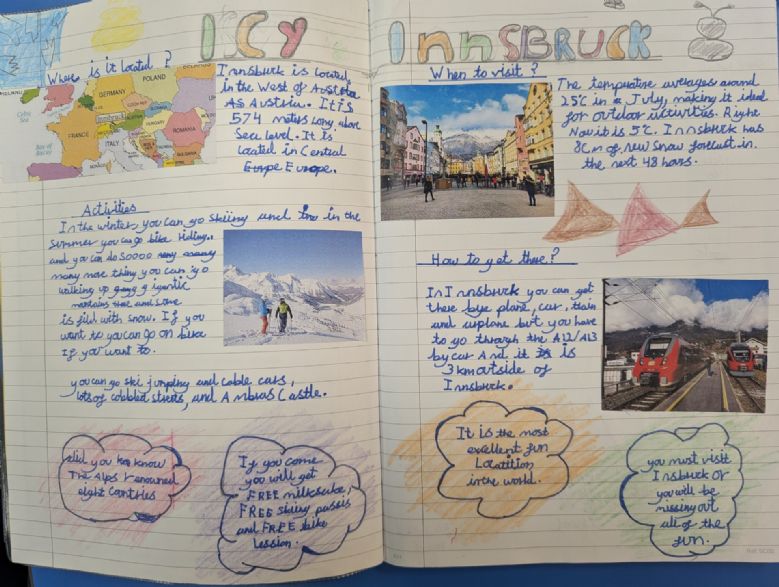 ICY INNSBRUCK
Where is it located?
Innsbruck is located
in the West of Austria
As Austria. It is
574 meters long above
Sea level. It is
Located in Central
Europe Europe.
POLAND
GERMANY
FRANCE
Innsbruck
ITALY
ROMANIA
BULGARIA
Celtic
Sea
Bay of
Biscay
Activities
In the winter you can go skiing and in the
Summer you can go bike riding.
and you can do soooo many
many more thing you can go
walking up gigantic
is fild with snow. If you
want to you can go on bike
If you want to.
you can go ski jumping and cable cars,
lots of cobbled streets, and Ambras Castle.
did you know
The Alps
eight countries
If you come
you will get
FREE milkshake,
FREE skiing passis
and FREE
Lession.
When to visit?
The temperature averages around
25°C in a July, making it ideal
for outdoor activities. Right
Now it is 5°C. Innsbruck has
8cm of new snow forecast in
the next 48 hours.
How to get there?
In Innsbruck you can get
there bye plane, car, train
and airplane but you have
to go through the A12/A13
by car And it is
3km outside of
Innsbruck.
It is the most
excellent fun
in the world.
you must visit
Insbruck or
you will be
missing out
all of the
fun.